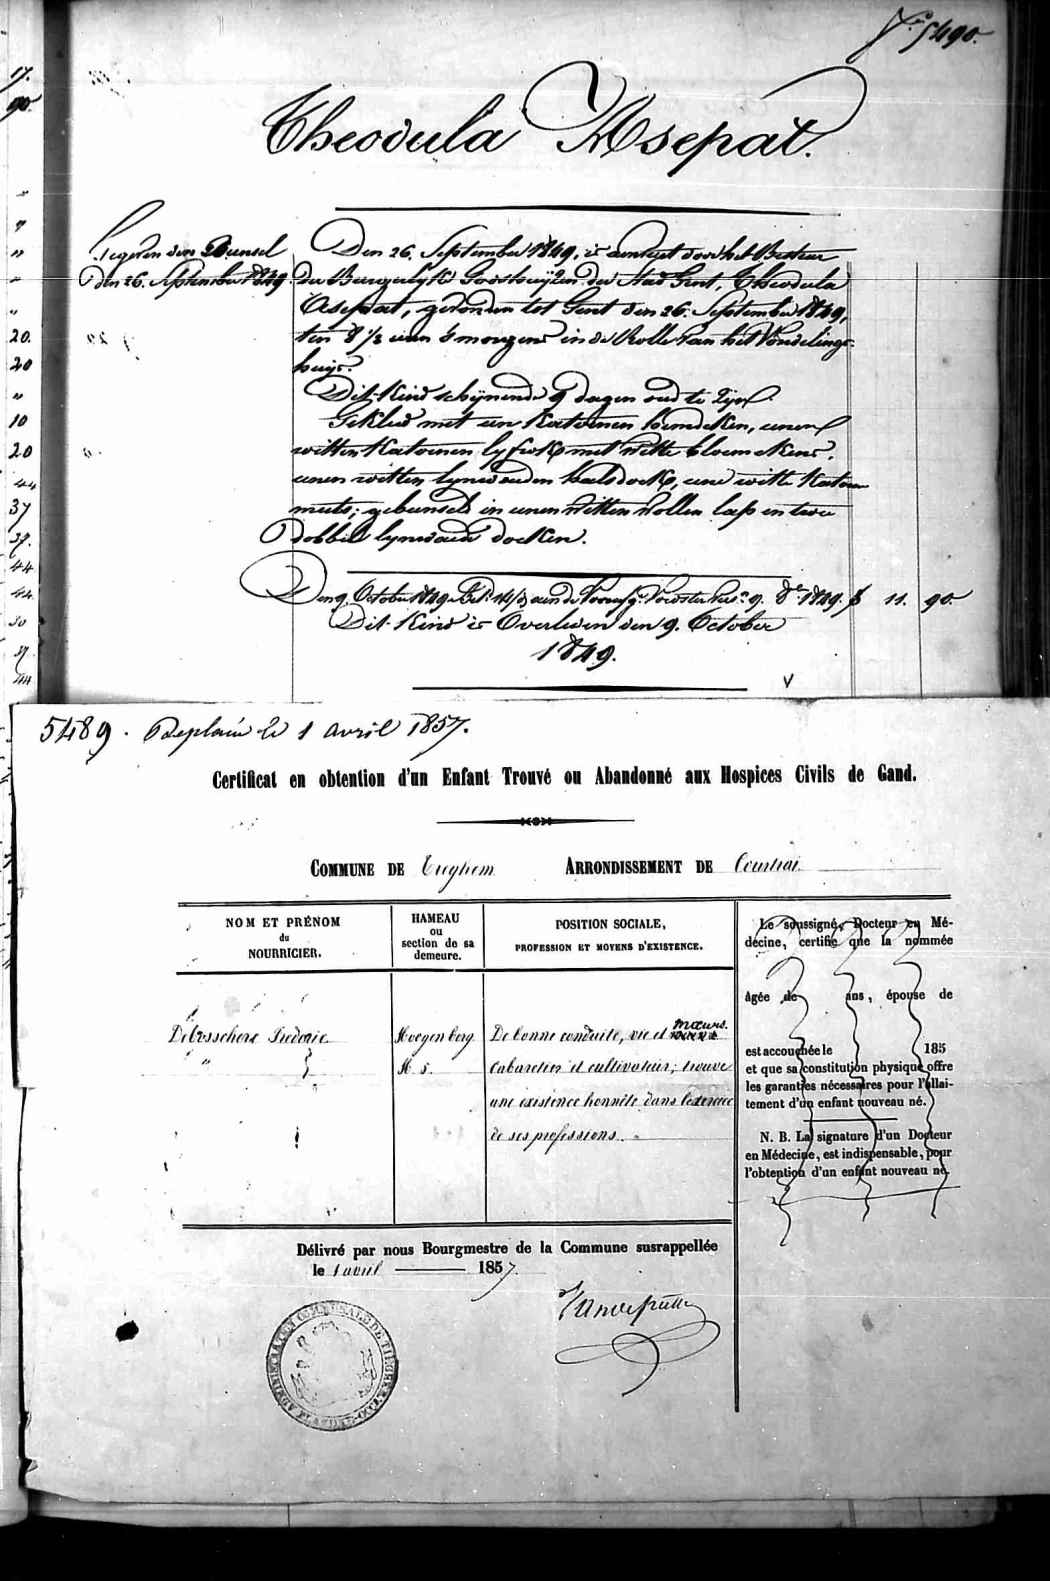 N.º 5490.
Theodula Asepat.
Den 26. September 1849, is aenveert door het Bestuer
den 26. September 1849.
der Burgerlyke Godshuyzen der Stad Gent, Theodula
Asepat, gevonden tot Gent den 26. September 1849,
ten 8 1/2 uren 's morgens in de Rolle van het Vondelings-
huys.
Dit Kind schynende 9 dagen oud te zyn.
Gekleed met een Katoenen hemdeken, eenen
witten Katoenen lyfrok met witte bloemekens,
eenen witten lynwaeden halsdoek, eene witte Katoen
muts; gebunseld in eenen witten wollen lap en twee
dobbel lynwaed doeken.
Den 9. October 1849. 9. 8.re 1849. f 11. 90.
Dit Kind is Overleden den 9. October
1849.
17.
90.
20.
20
10
20
44
37
37.
44
44
30
37
44
5489. Replacé le 1 avril 1857.
Certificat en obtention d'un Enfant Trouvé ou Abandonné aux Hospices Civils de Gand.
COMMUNE DE Tieghem ARRONDISSEMENT DE Courtrai
NOM ET PRÉNOM
du
NOURRICIER.
HAMEAU
ou
section de sa
demeure.
POSITION SOCIALE,
PROFESSION ET MOYENS D'EXISTENCE.
Debosschere Frederic
Hoegenberg
N. 5.
De bonne conduite, vie et mœurs.
cabaretier et cultivateur; trouve
une existence honnête dans l'exercice
de ses professions.
Le soussigné, Docteur en Mé-
decine, certifie que la nommée
âgée de ans, épouse de
est accouchée le 185
et que sa constitution physique offre
les garanties nécessaires pour l'allai-
tement d'un enfant nouveau né.
N. B. La signature d'un Docteur
en Médecine, est indispensable, pour
l'obtention d'un enfant nouveau né.
Délivré par nous Bourgmestre de la Commune susrappellée
le 1 avril 1857